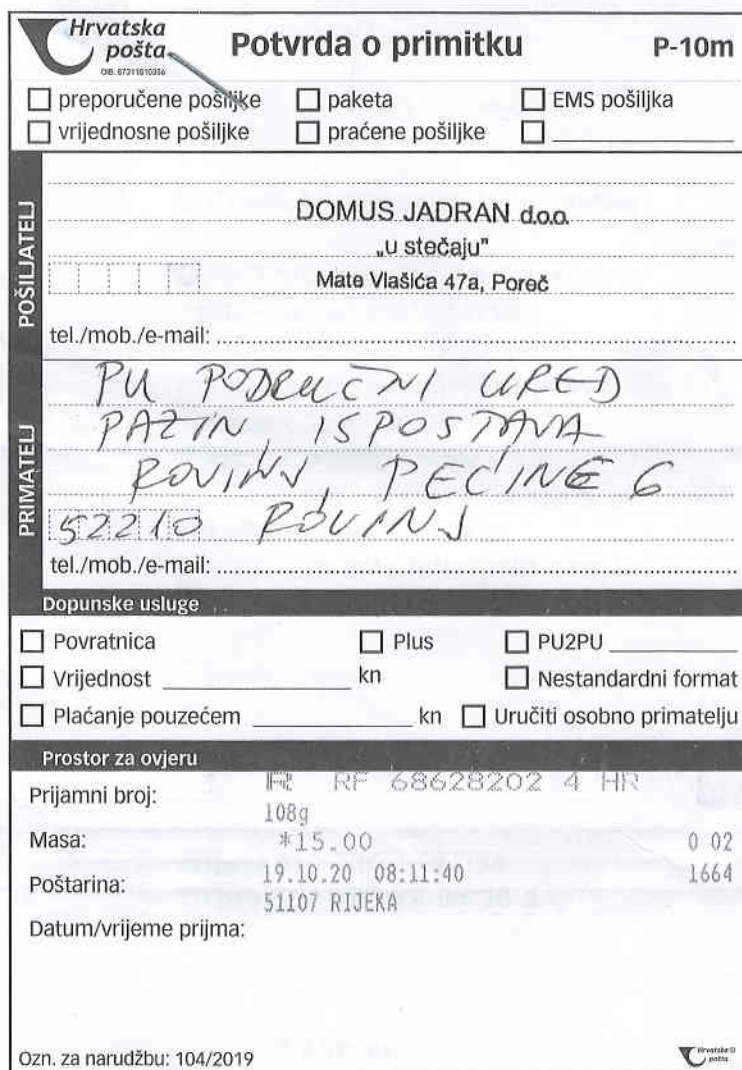 Hrvatska
pošta
OIB: 87311810356
Potvrda o primitku
P-10m
preporučene pošiljke
paketa
EMS pošiljka
vrijednosne pošiljke
praćene pošiljke
POŠILJATELJ
DOMUS JADRAN d.o.o.
„u stečaju"
Mate Vlašića 47a, Poreč
tel./mob./e-mail:
PRIMATELJ
PU PODRUČNI URED
PAZIN, ISPOSTAVA
ROVINJ, PEĆINE 6
52210 ROVINJ
tel./mob./e-mail:
Dopunske usluge
Povratnica
Plus
PU2PU
Vrijednost kn
Nestandardni format
Plaćanje pouzećem kn
Uručiti osobno primatelju
Prostor za ovjeru
Prijamni broj:
R RF 68628202 4 HR
108g
Masa:
*15.00 0 02
Poštarina:
19.10.20 08:11:40 1664
51107 RIJEKA
Datum/vrijeme prijma:
Ozn. za narudžbu: 104/2019
Hrvatska
pošta